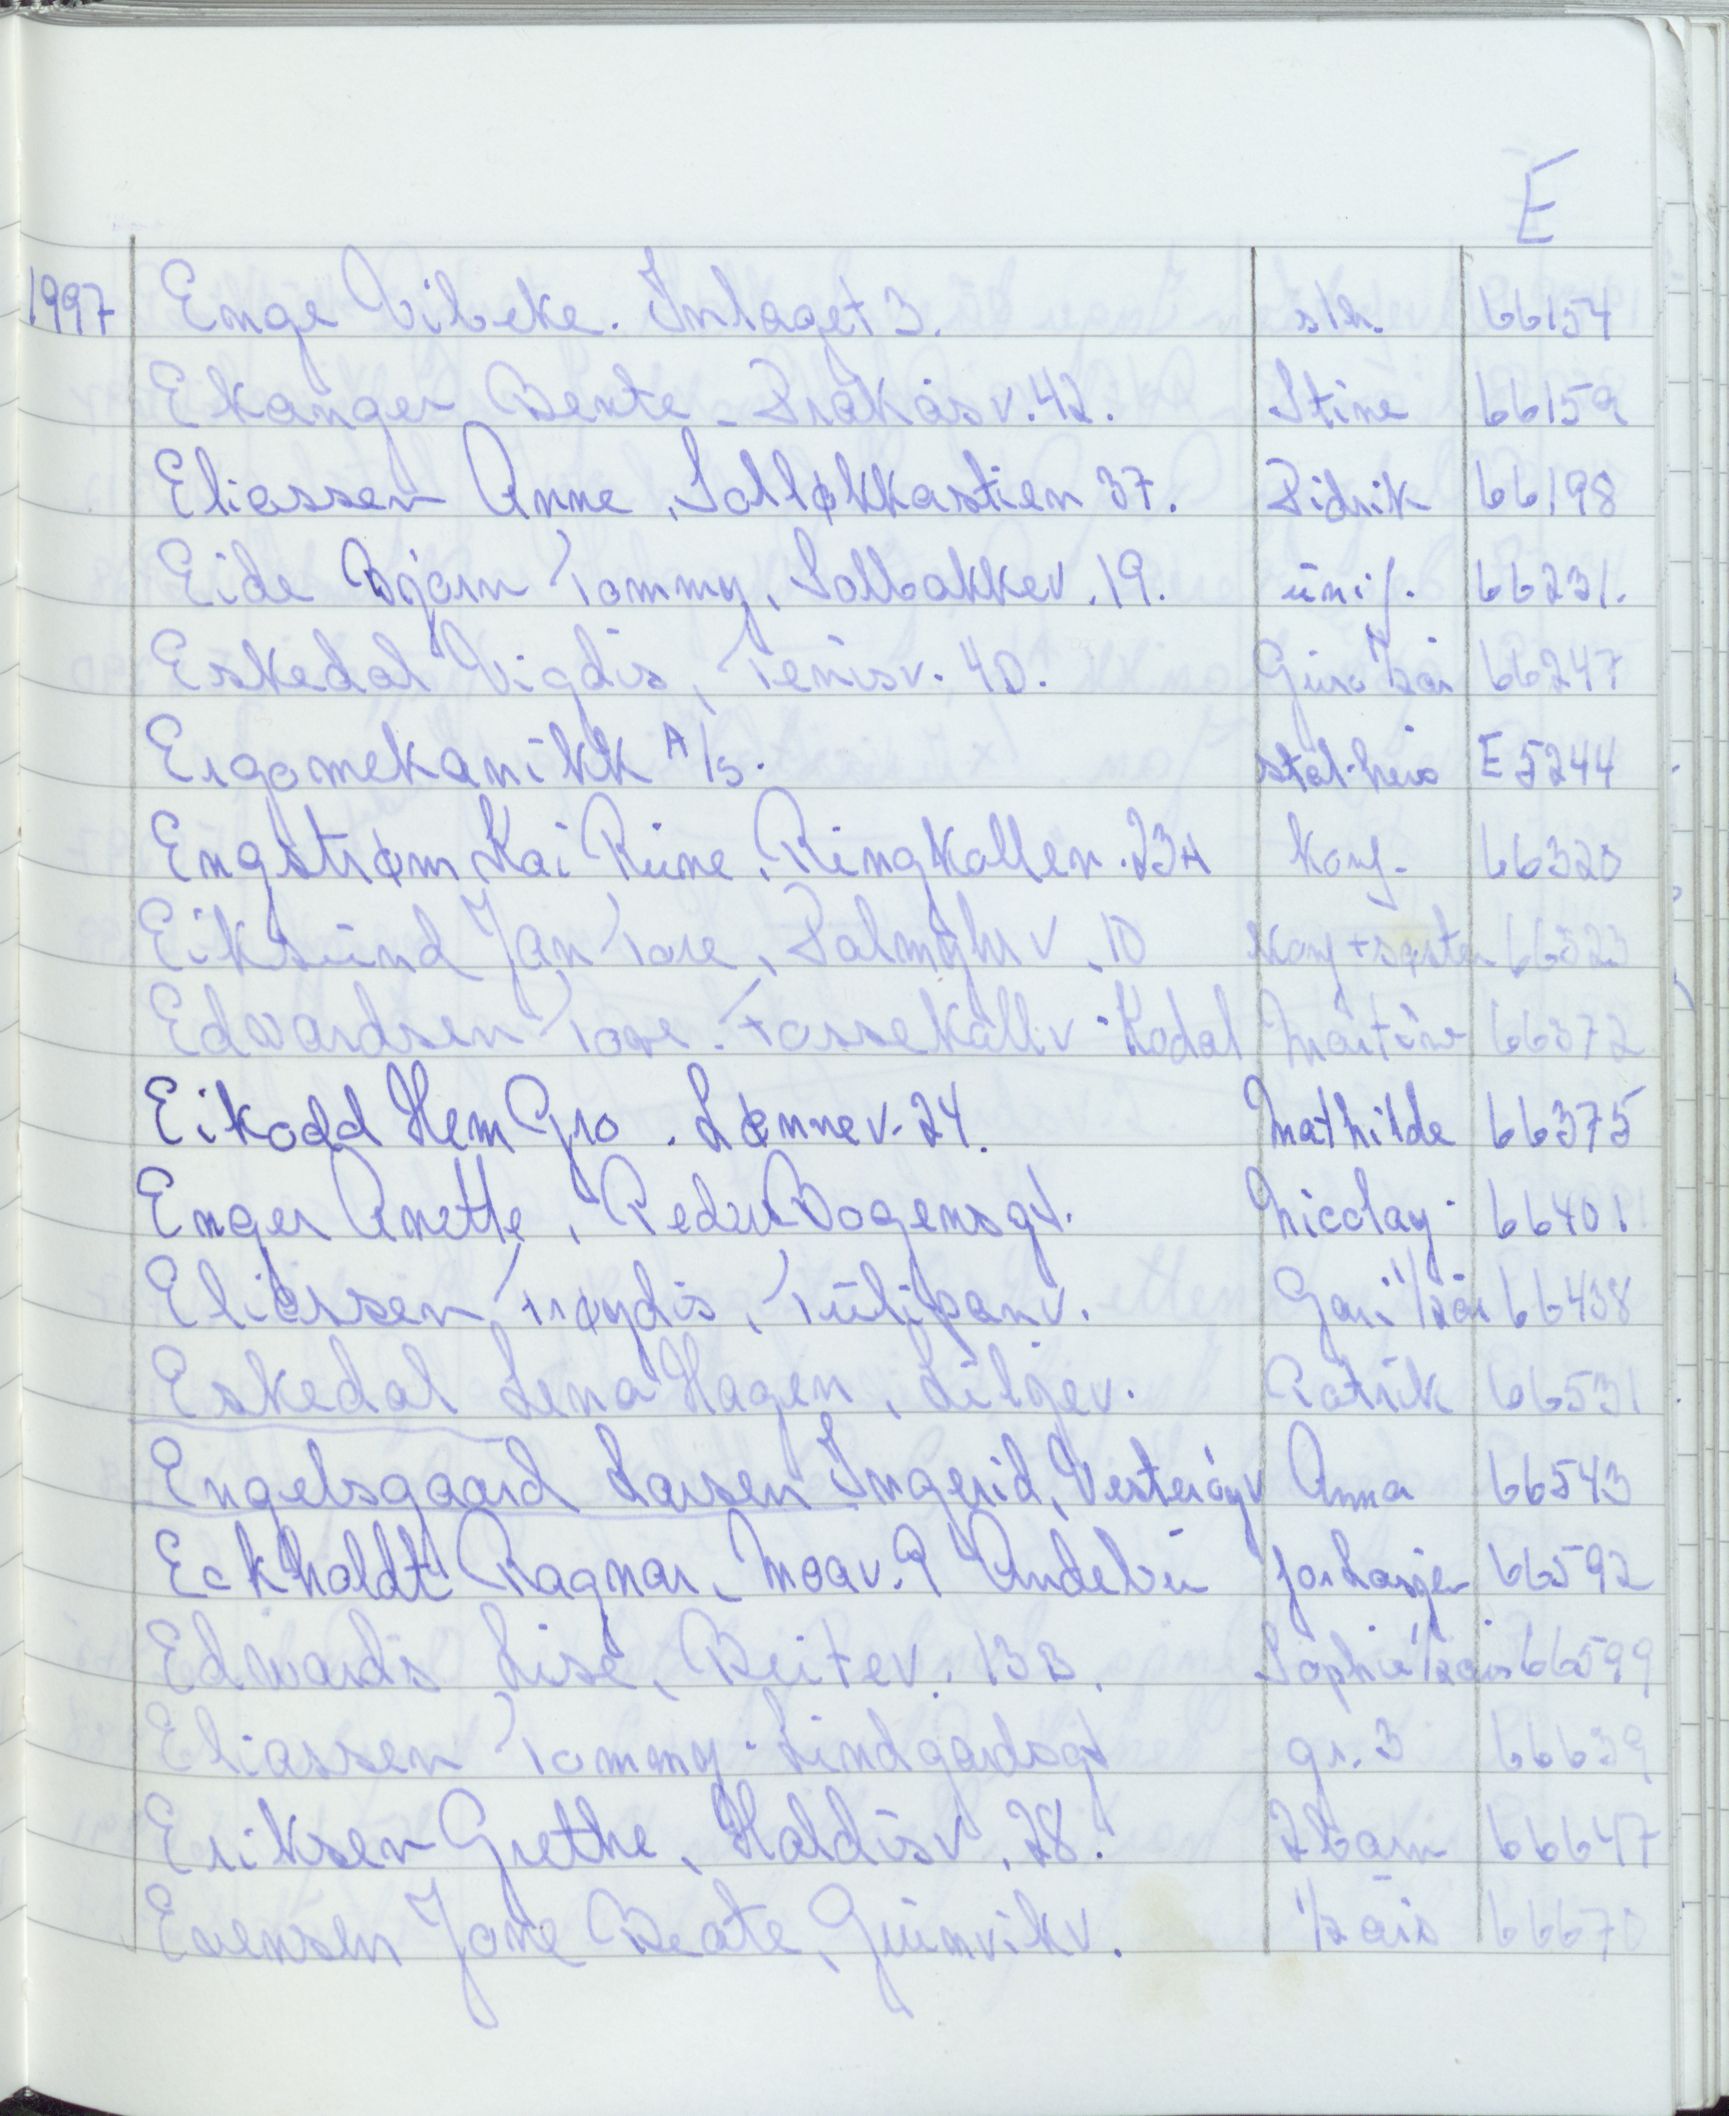 E
1997 Enge Vibeke. Inlaget 3. slh. 66154
Ekanger Bente. Dråkåsv. 42. Stine 66159
Eliassen Anne, Solløkkastien 37. Didrik 66198
Eide Bjørn Tommy, Solbakkev. 19. unif. 66231.
Eskedal Vigdis, Tenisv. 40. Guro 1/2 år 66247
Ergomekanikk A/S. E5244
Engstrøm Kai Rune, Ringkollen. 23A Konf. 66320
Eiksund Jan Tore, Palmyhrv. 10 Konf + søster 66323
Edvardsen Tove. Fossekallv. Kodal Martine 66372
Eikodd Hem Gro. Lønnev. 24. Mathilde 66375
Enger Anette, Peder Bogensgt. Nicolay. 66401
Eliassen Frøydis, Tulipanv. Gari 1/2 år 66438
Eskedal Lena Hagen, Liljev. Patrik 66531
Engelsgaard Larsen Ingerid, Vesterøyv Anna 66543
Eckholdt Ragnar, Moav. 9 Andebu 66592
Edwards Lise, Beitev. 13B. Sophie 1/2 års 66599
Eliassen Tommy. Lindgårdsgt gr. 3 66639
Eriksen Grethe, Haldisv. 28. 2 barn 66647
Evensen Jane Beate, Grinvikv. 1/2 års 66670